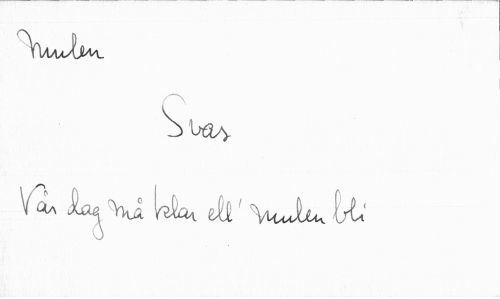 mulen
Svas
Vår dag må klar ell' mulen bli